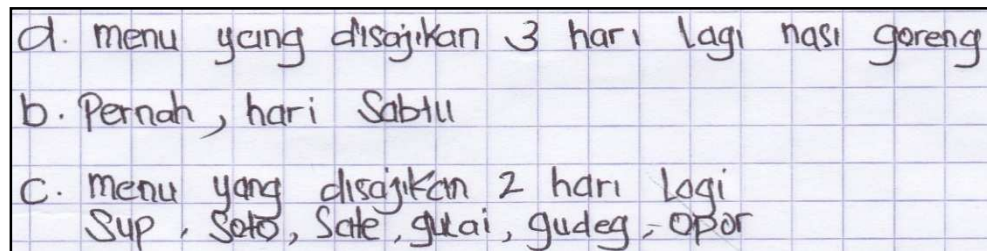 d. menu yang disajikan 3 hari lagi nasi goreng
b. Pernah, hari Sabtu
c. menu yang disajikan 2 hari lagi
Sup, Soto, Sate, gulai, gudeg, opor